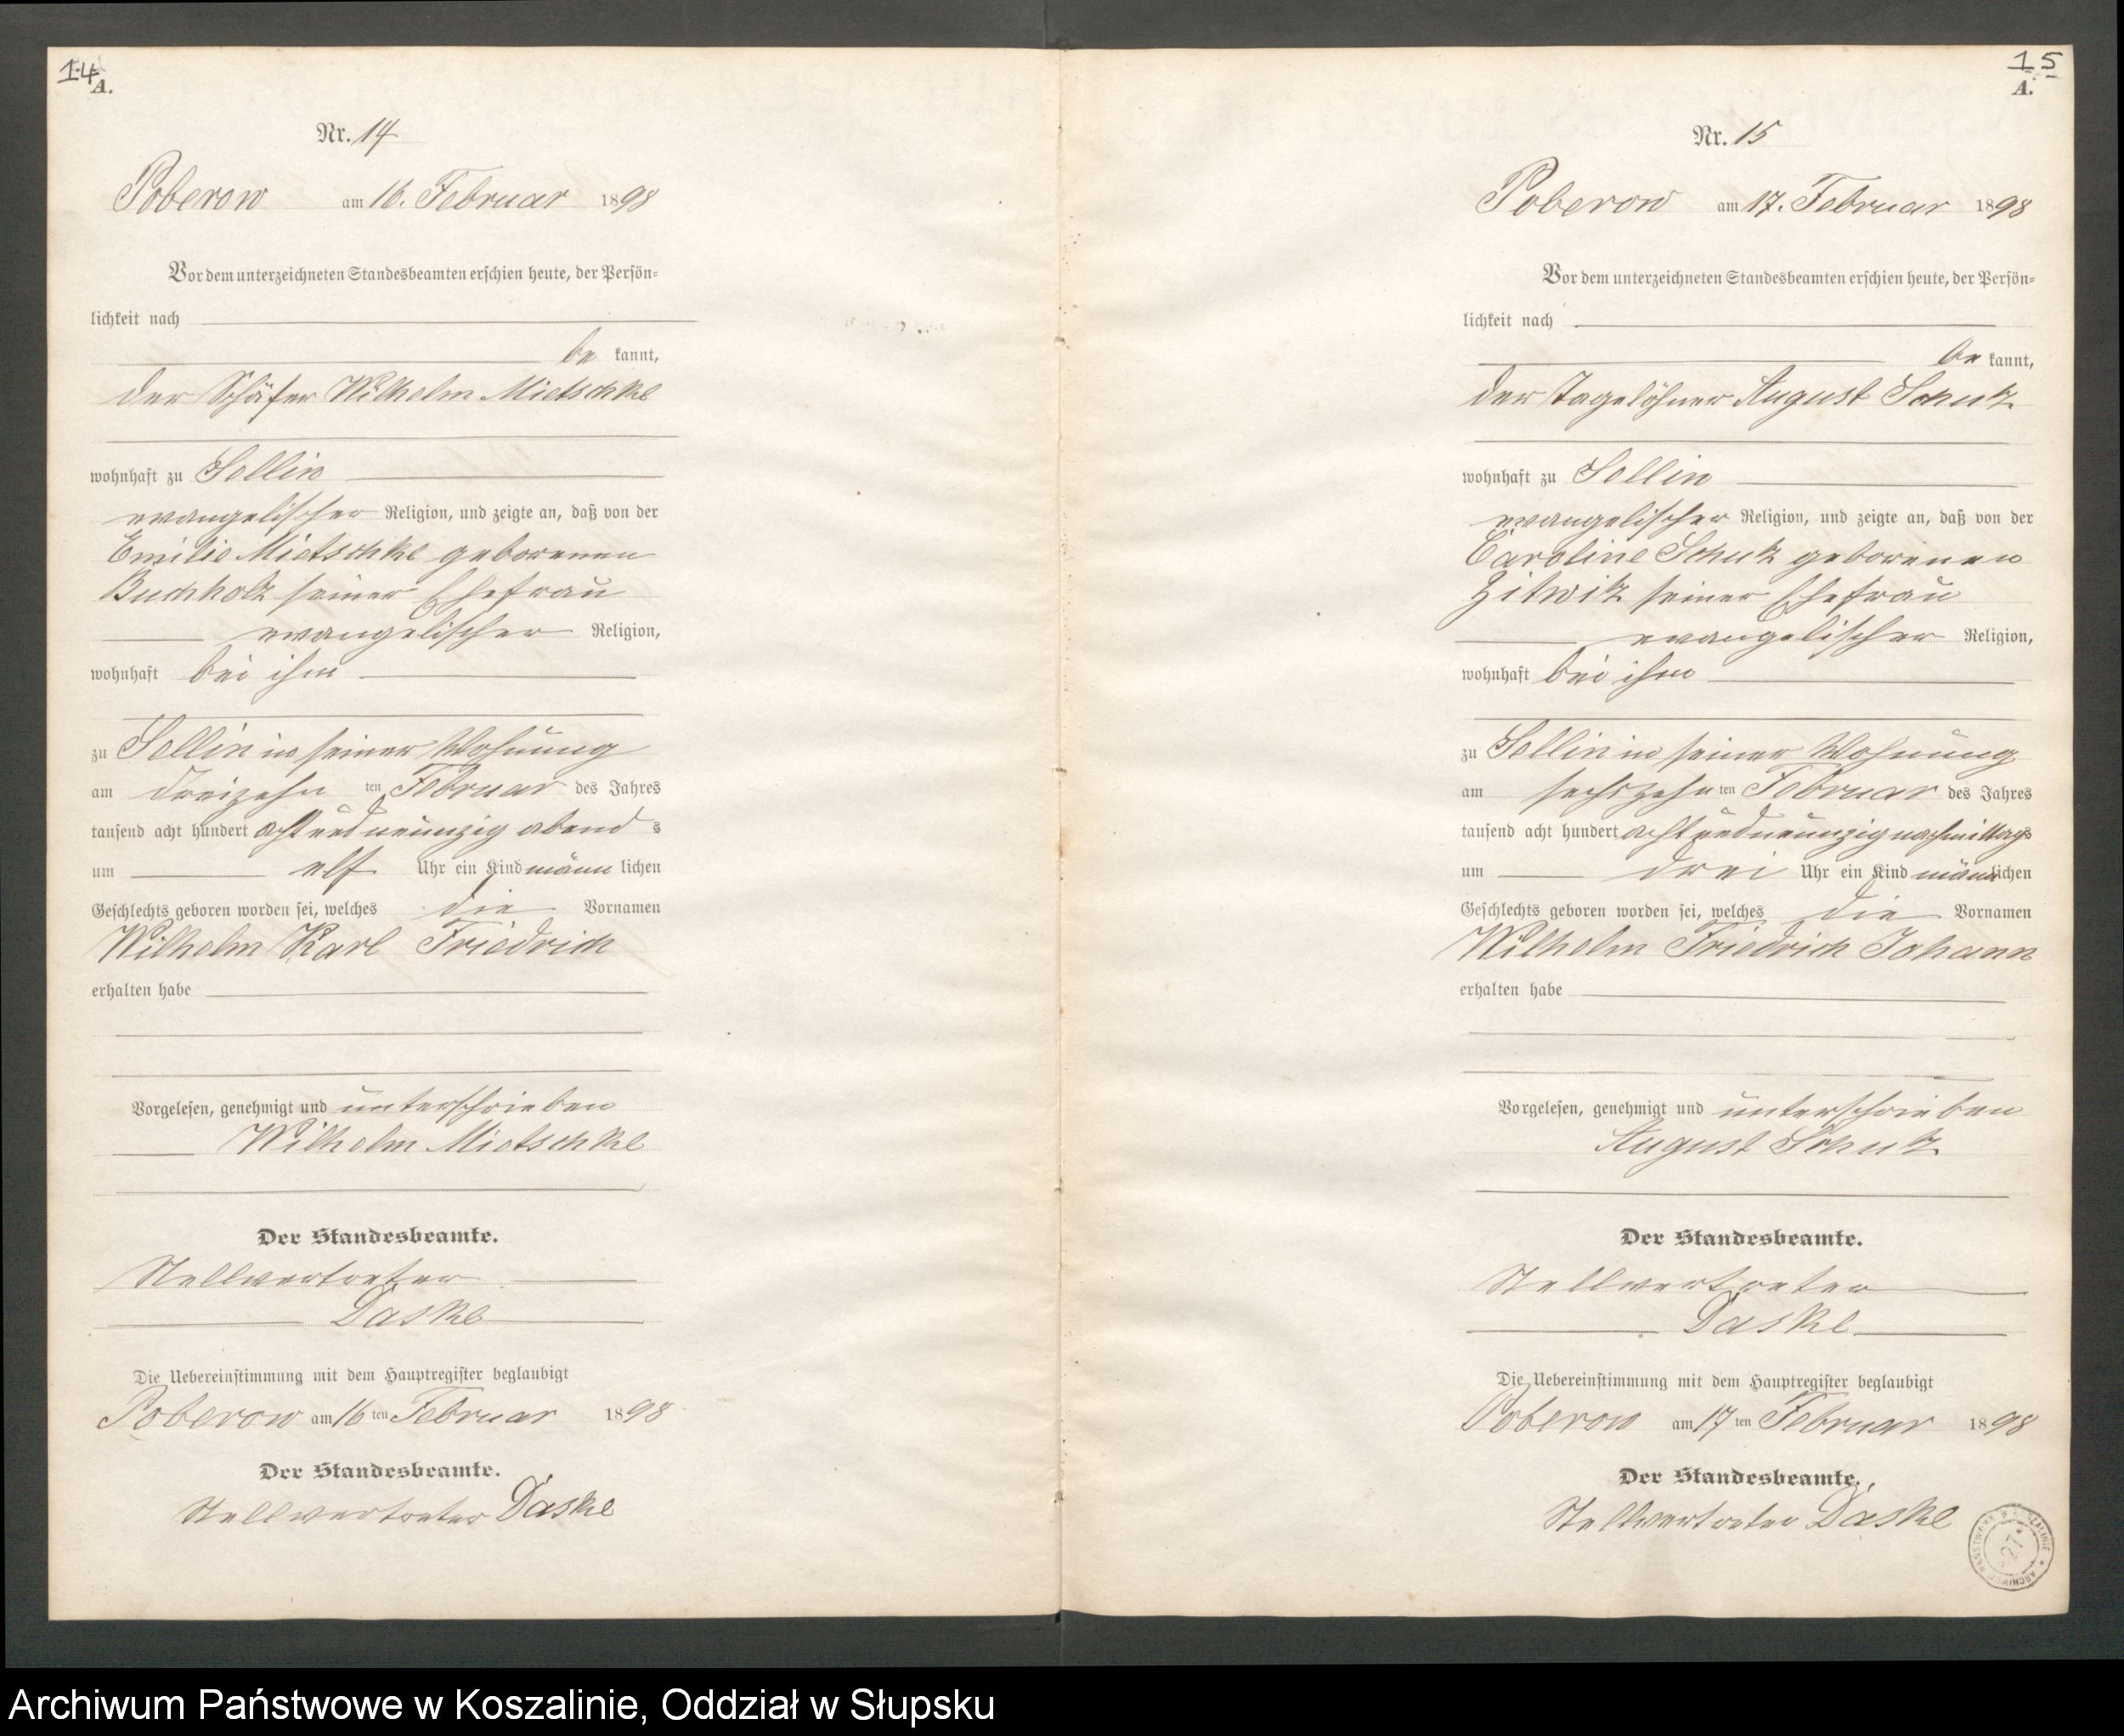 14
A.
Nr. 14
Poberow am 16. Februar 1898
Vor dem unterzeichneten Standesbeamten erschien heute, der Persön-
lichkeit nach
be kannt,
der Schäfer Wilhelm Mietschke
wohnhaft zu Sellin
evangelischer Religion, und zeigte an, daß von der
Emilie Mietschke geborenen
Buchholz seiner Ehefrau
evangelischer Religion,
wohnhaft bei ihm
zu Sellin in seiner Wohnung
am dreizehn ten Februar des Jahres
tausend acht hundert acht und neunzig abend s
um elf Uhr ein Kind männ lichen
Geschlechts geboren worden sei, welches die Vornamen
Wilhelm Karl Friedrich
erhalten habe
Vorgelesen, genehmigt und unterschrieben
Wilhelm Mietschke
Der Standesbeamte.
Stellvertreter
Daske
Die Uebereinstimmung mit dem Hauptregister beglaubigt
Poberow am 16 ten Februar 1898
Der Standesbeamte.
Stellvertreter Daske
15
A.
Nr. 15
Poberow am 17. Februar 1898
Vor dem unterzeichneten Standesbeamten erschien heute, der Persön-
lichkeit nach
be kannt,
der Tagelöhner August Schutz
wohnhaft zu Sellin
evangelischer Religion, und zeigte an, daß von der
Caroline Schutz geborenen
Zitwitz seiner Ehefrau
evangelischer Religion,
wohnhaft bei ihm
zu Sellin in seiner Wohnung
am sechszehn ten Februar des Jahres
tausend acht hundert acht und neunzig nachmittags
um drei Uhr ein Kind männlichen
Geschlechts geboren worden sei, welches die Vornamen
Wilhelm Friedrich Johann
erhalten habe
Vorgelesen, genehmigt und unterschrieben
August Schutz
Der Standesbeamte.
Stellvertreter
Daske
Die Uebereinstimmung mit dem Hauptregister beglaubigt
Poberow am 17 ten Februar 1898
Der Standesbeamte.
Stellvertreter Daske
27
Archiwum Państwowe w Koszalinie, Oddział w Słupsku